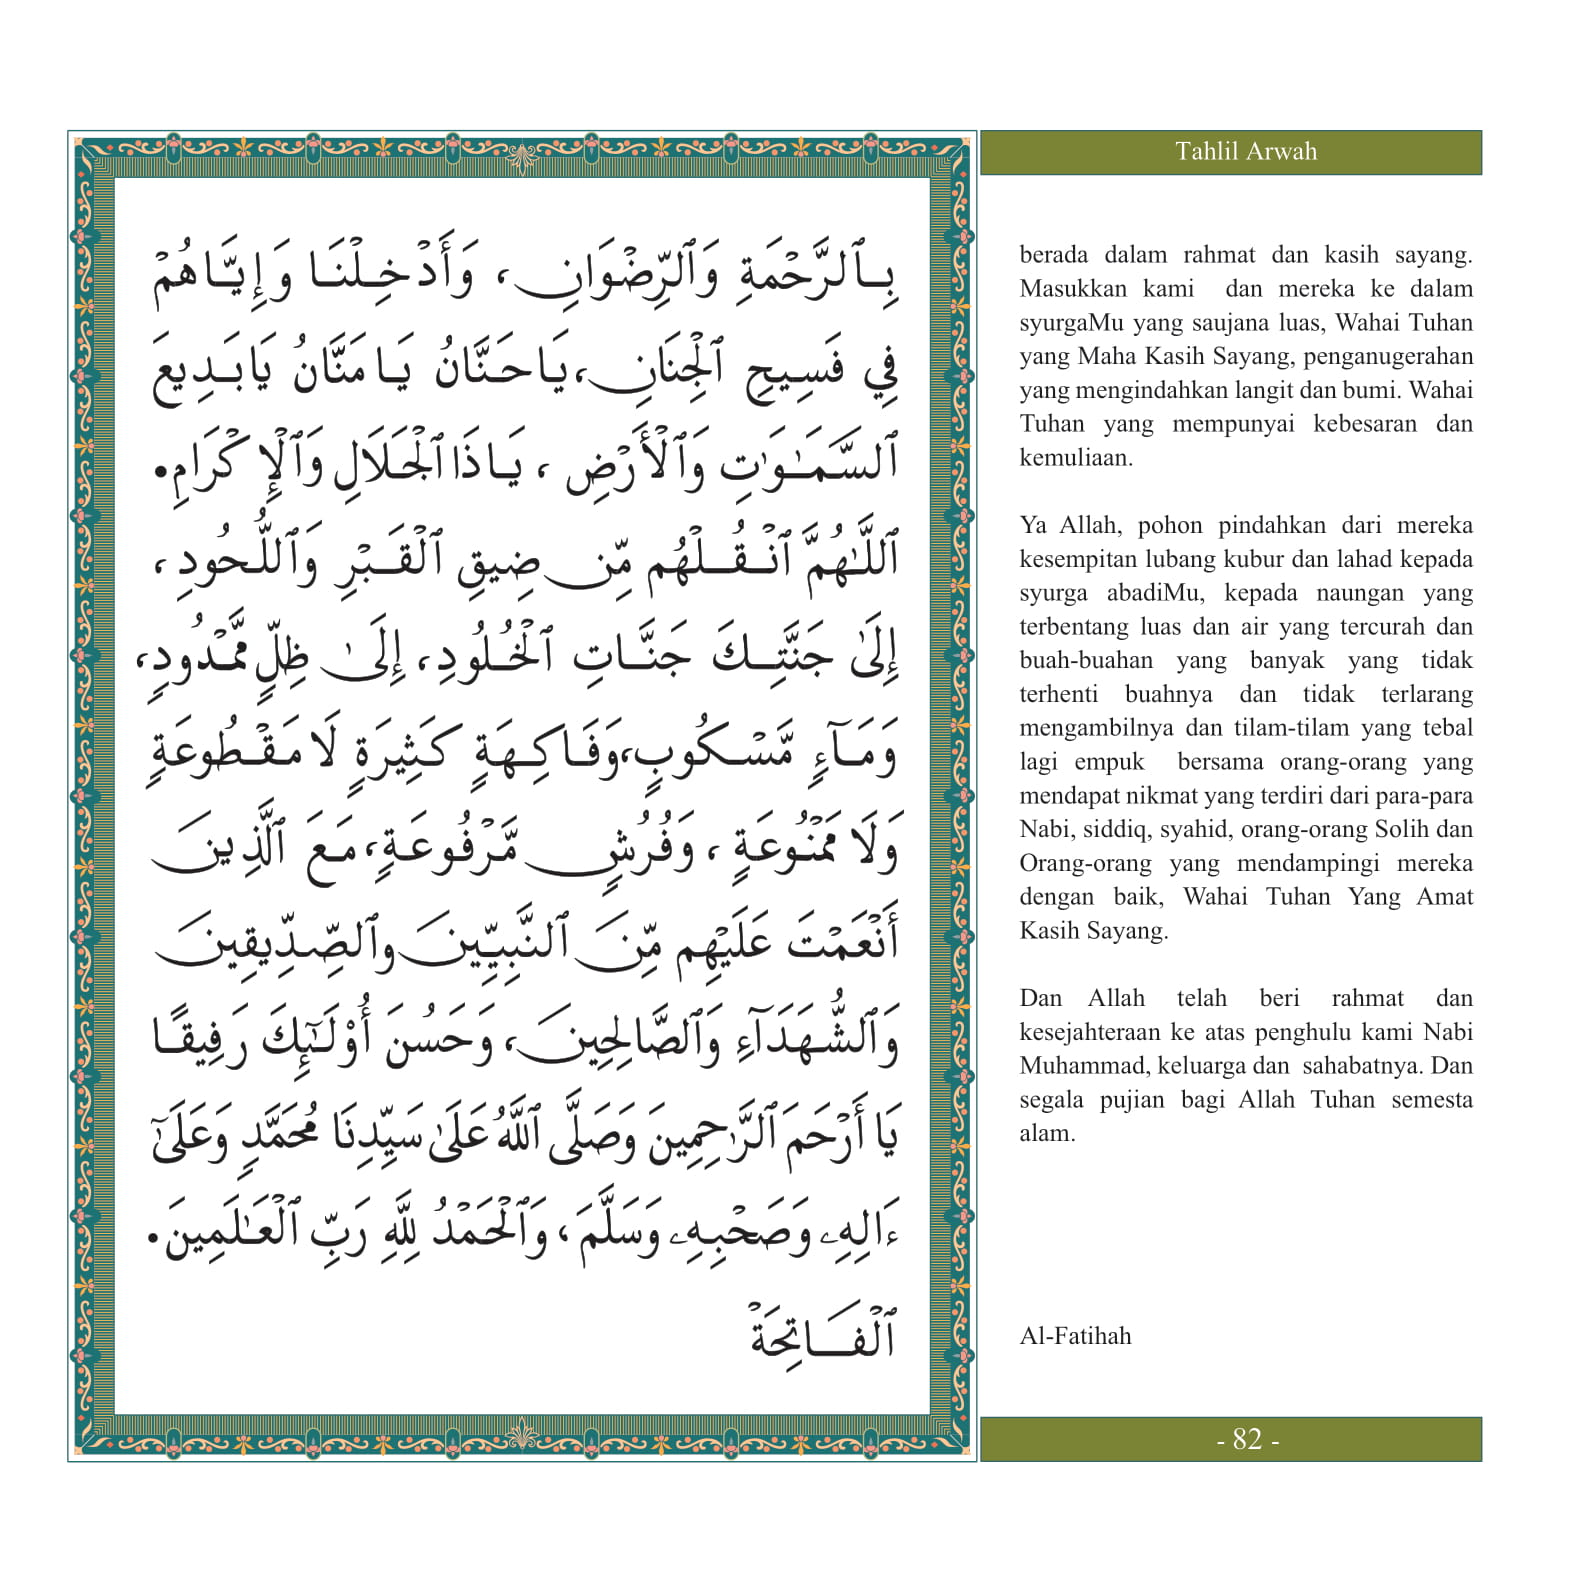 Tahlil Arwah
بِٱلرَّحْمَةِ وَٱلرِّضْوَانِ، وَأَدْخِلْنَا وَإِيَّاهُمْ
فِي فَسِيحِ ٱلْجِنَانِ، يَا حَنَّانُ يَا مَنَّانُ يَا بَدِيعَ
ٱلسَّمَـٰوَٰتِ وَٱلْأَرْضِ، يَا ذَا ٱلْجَلَالِ وَٱلْإِكْرَامِ.
ٱللَّـٰهُمَّ ٱنْقُلْهُم مِّن ضِيقِ ٱلْقَبْرِ وَٱللُّحُودِ،
إِلَىٰ جَنَّتِكَ جَنَّاتِ ٱلْخُلُودِ، إِلَىٰ ظِلٍّ مَّمْدُودٍ،
وَمَآءٍ مَّسْكُوبٍ، وَفَاكِهَةٍ كَثِيرَةٍ لَا مَقْطُوعَةٍ
وَلَا مَمْنُوعَةٍ، وَفُرُشٍ مَّرْفُوعَةٍ، مَعَ ٱلَّذِينَ
أَنْعَمْتَ عَلَيْهِم مِّنَ ٱلنَّبِيِّينَ وٱلصِّدِّيقِينَ
وَٱلشُّهَدَآءِ وَٱلصَّالِحِينَ، وَحَسُنَ أُوْلَـٰٓئِكَ رَفِيقًا
يَا أَرْحَمَ ٱلرَّٰحِمِينَ وَصَلَّى ٱللَّهُ عَلَىٰ سَيِّدِنَا مُحَمَّدٍ وَعَلَىٰٓ
ءَالِهِۦ وَصَحْبِهِۦ وَسَلَّمَ، وَٱلْحَمْدُ لِلَّهِ رَبِّ ٱلْعَـٰلَمِينَ.
ٱلْفَاتِحَةْ
berada dalam rahmat dan kasih sayang.
Masukkan kami dan mereka ke dalam
syurgaMu yang saujana luas, Wahai Tuhan
yang Maha Kasih Sayang, penganugerahan
yang mengindahkan langit dan bumi. Wahai
Tuhan yang mempunyai kebesaran dan
kemuliaan.
Ya Allah, pohon pindahkan dari mereka
kesempitan lubang kubur dan lahad kepada
syurga abadiMu, kepada naungan yang
terbentang luas dan air yang tercurah dan
buah-buahan yang banyak yang tidak
terhenti buahnya dan tidak terlarang
mengambilnya dan tilam-tilam yang tebal
lagi empuk bersama orang-orang yang
mendapat nikmat yang terdiri dari para-para
Nabi, siddiq, syahid, orang-orang Solih dan
Orang-orang yang mendampingi mereka
dengan baik, Wahai Tuhan Yang Amat
Kasih Sayang.
Dan Allah telah beri rahmat dan
kesejahteraan ke atas penghulu kami Nabi
Muhammad, keluarga dan sahabatnya. Dan
segala pujian bagi Allah Tuhan semesta
alam.
Al-Fatihah
- 82 -